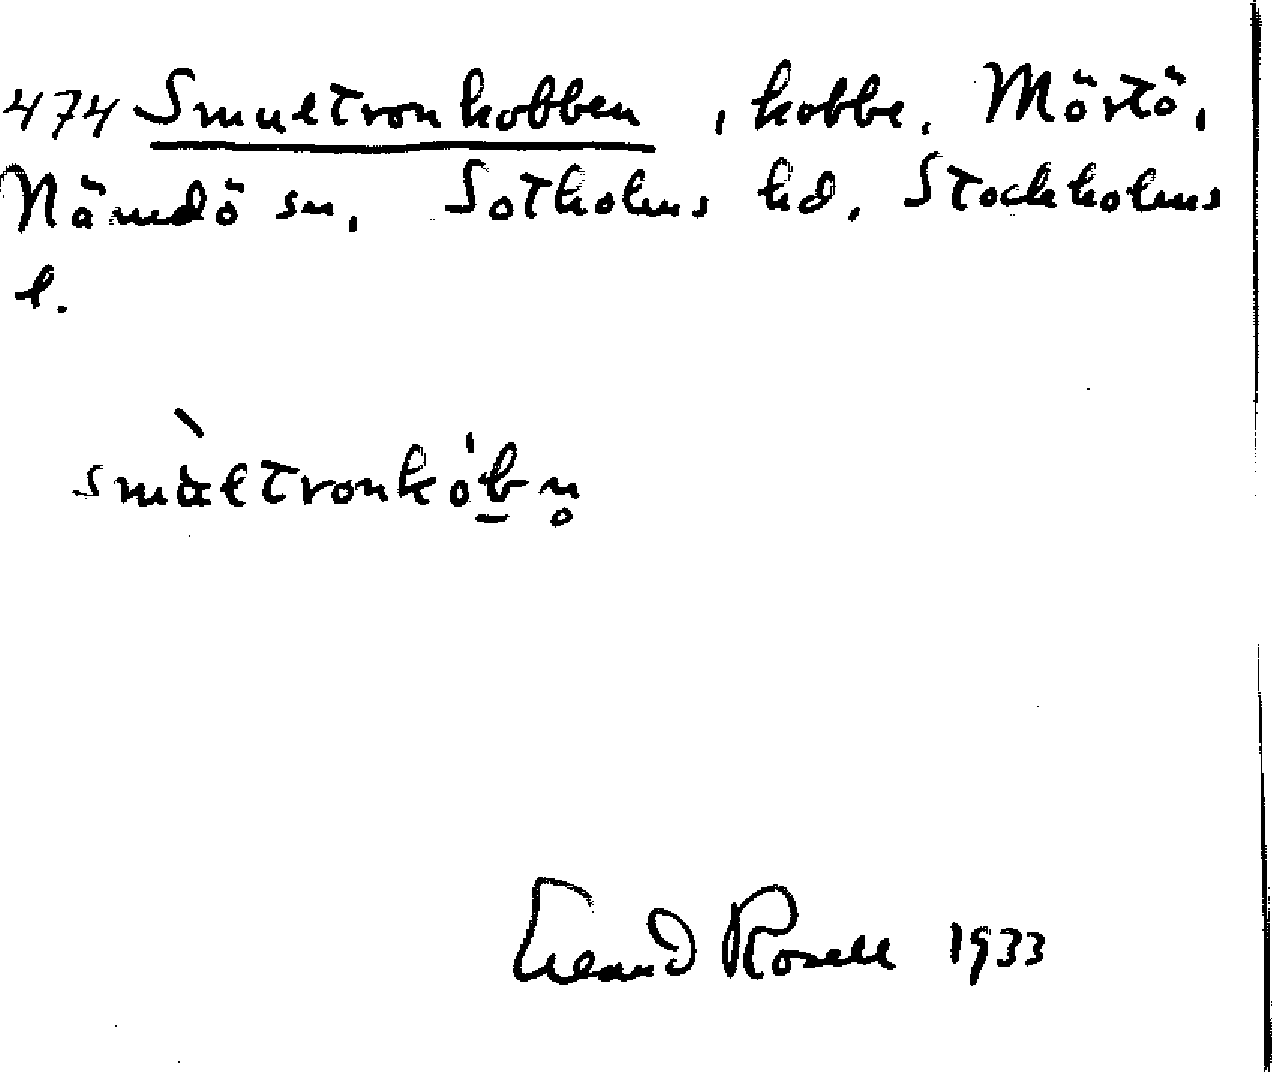 474 Smultronkobben, kobbe, Mörtö,
Nämdö sn, Sotholms hd, Stockholms
l.
smul̀tronkób̲n̥
Rosell 1933